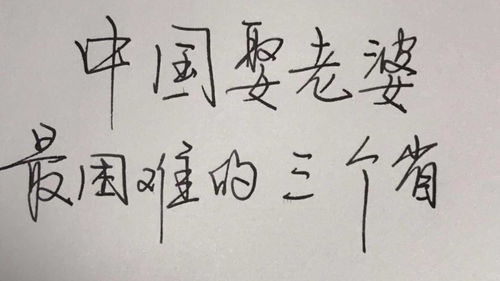 中国娶老婆
最困难的三个省